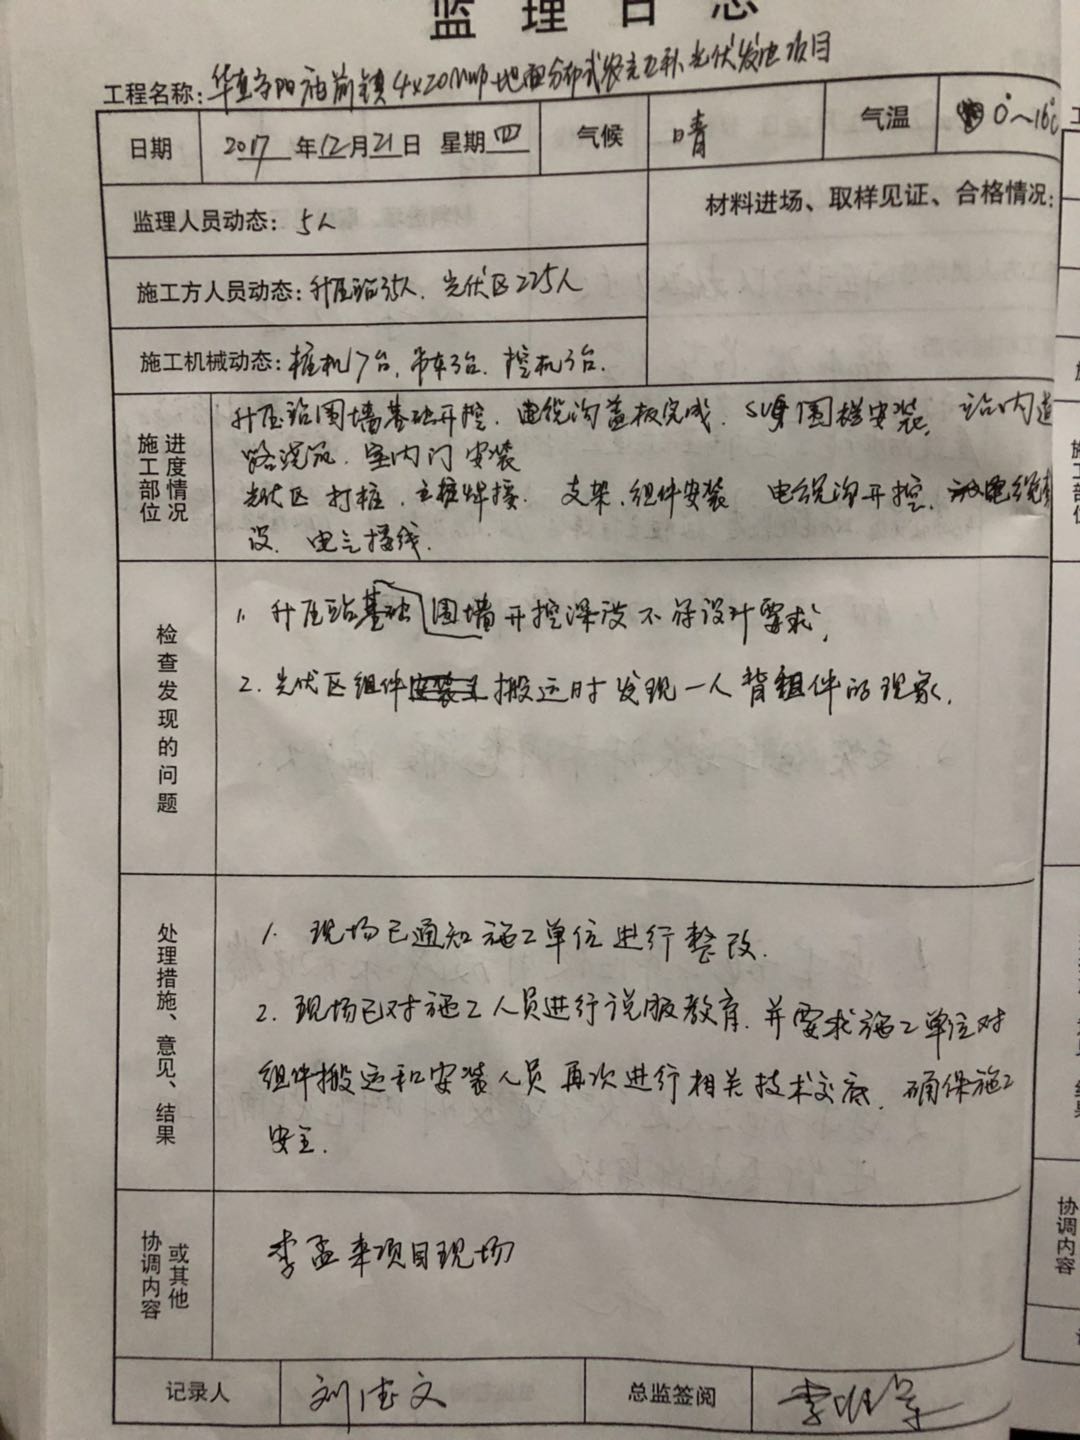 监理日志
工程名称：华直阳社前镇4×20MWp地面分布式农光互补光伏发电项目
日期 2017年12月21日 星期四 气候 晴 气温 0°~16℃
监理人员动态：5人 材料进场、取样见证、合格情况：
施工方人员动态：升压站35人、光伏区225人
施工机械动态：桩机17台，吊车3台、挖机3台.
施工部位进度情况
升压站围墙基础开挖、电缆沟盖板完成、SVG围栏安装、站内道
路浇筑、室内门安装
光伏区 打桩、立柱焊接、支架、组件安装 电缆沟开挖、电缆敷
设、电气接线.
检查发现的问题
1. 升压站基础围墙开挖深度不符设计要求，
2. 光伏区组件搬运时发现一人背组件的现象.
处理措施、意见、结果
1. 现场已通知施工单位进行整改.
2. 现场已对施工人员进行说服教育、并要求施工单位对
组件搬运和安装人员再次进行相关技术交底、确保施工
安全.
协调内容或其他
李孟来项目现场
记录人 刘德文 总监签阅